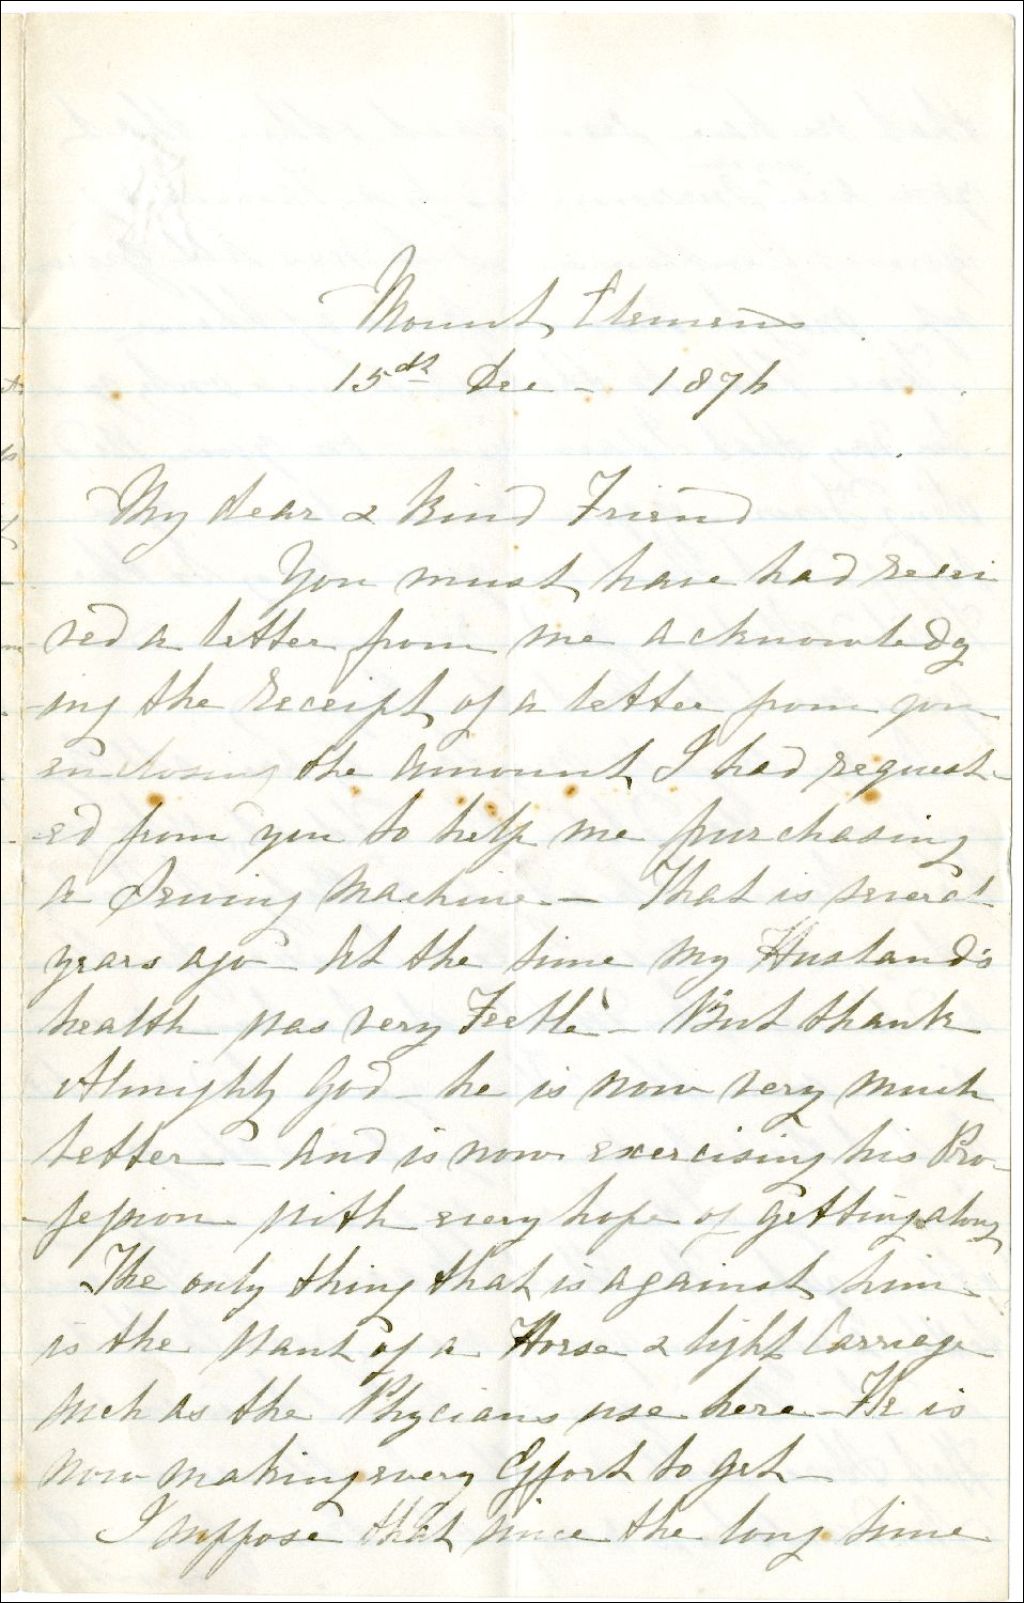 Mount Clemens
15th Dec - 1876
My dear & Kind Friend
You must have had recei
ved a letter from me acknowledg
ing the receipt of a letter from you
enclosing the amount I had request-
ed from you to help me purchasing
a Sewing Machine - That is several
years ago - At the time my Husband's
health was very Feeble - But thank
Almighty God - he is now very much
better - And is now exercising his Pro-
fession with every hope of getting along
The only thing that is against him
is the Want of a Horse & light Carriage
such as the Phycians use here - He is
now making every Effort to get -
I suppose that since the long time